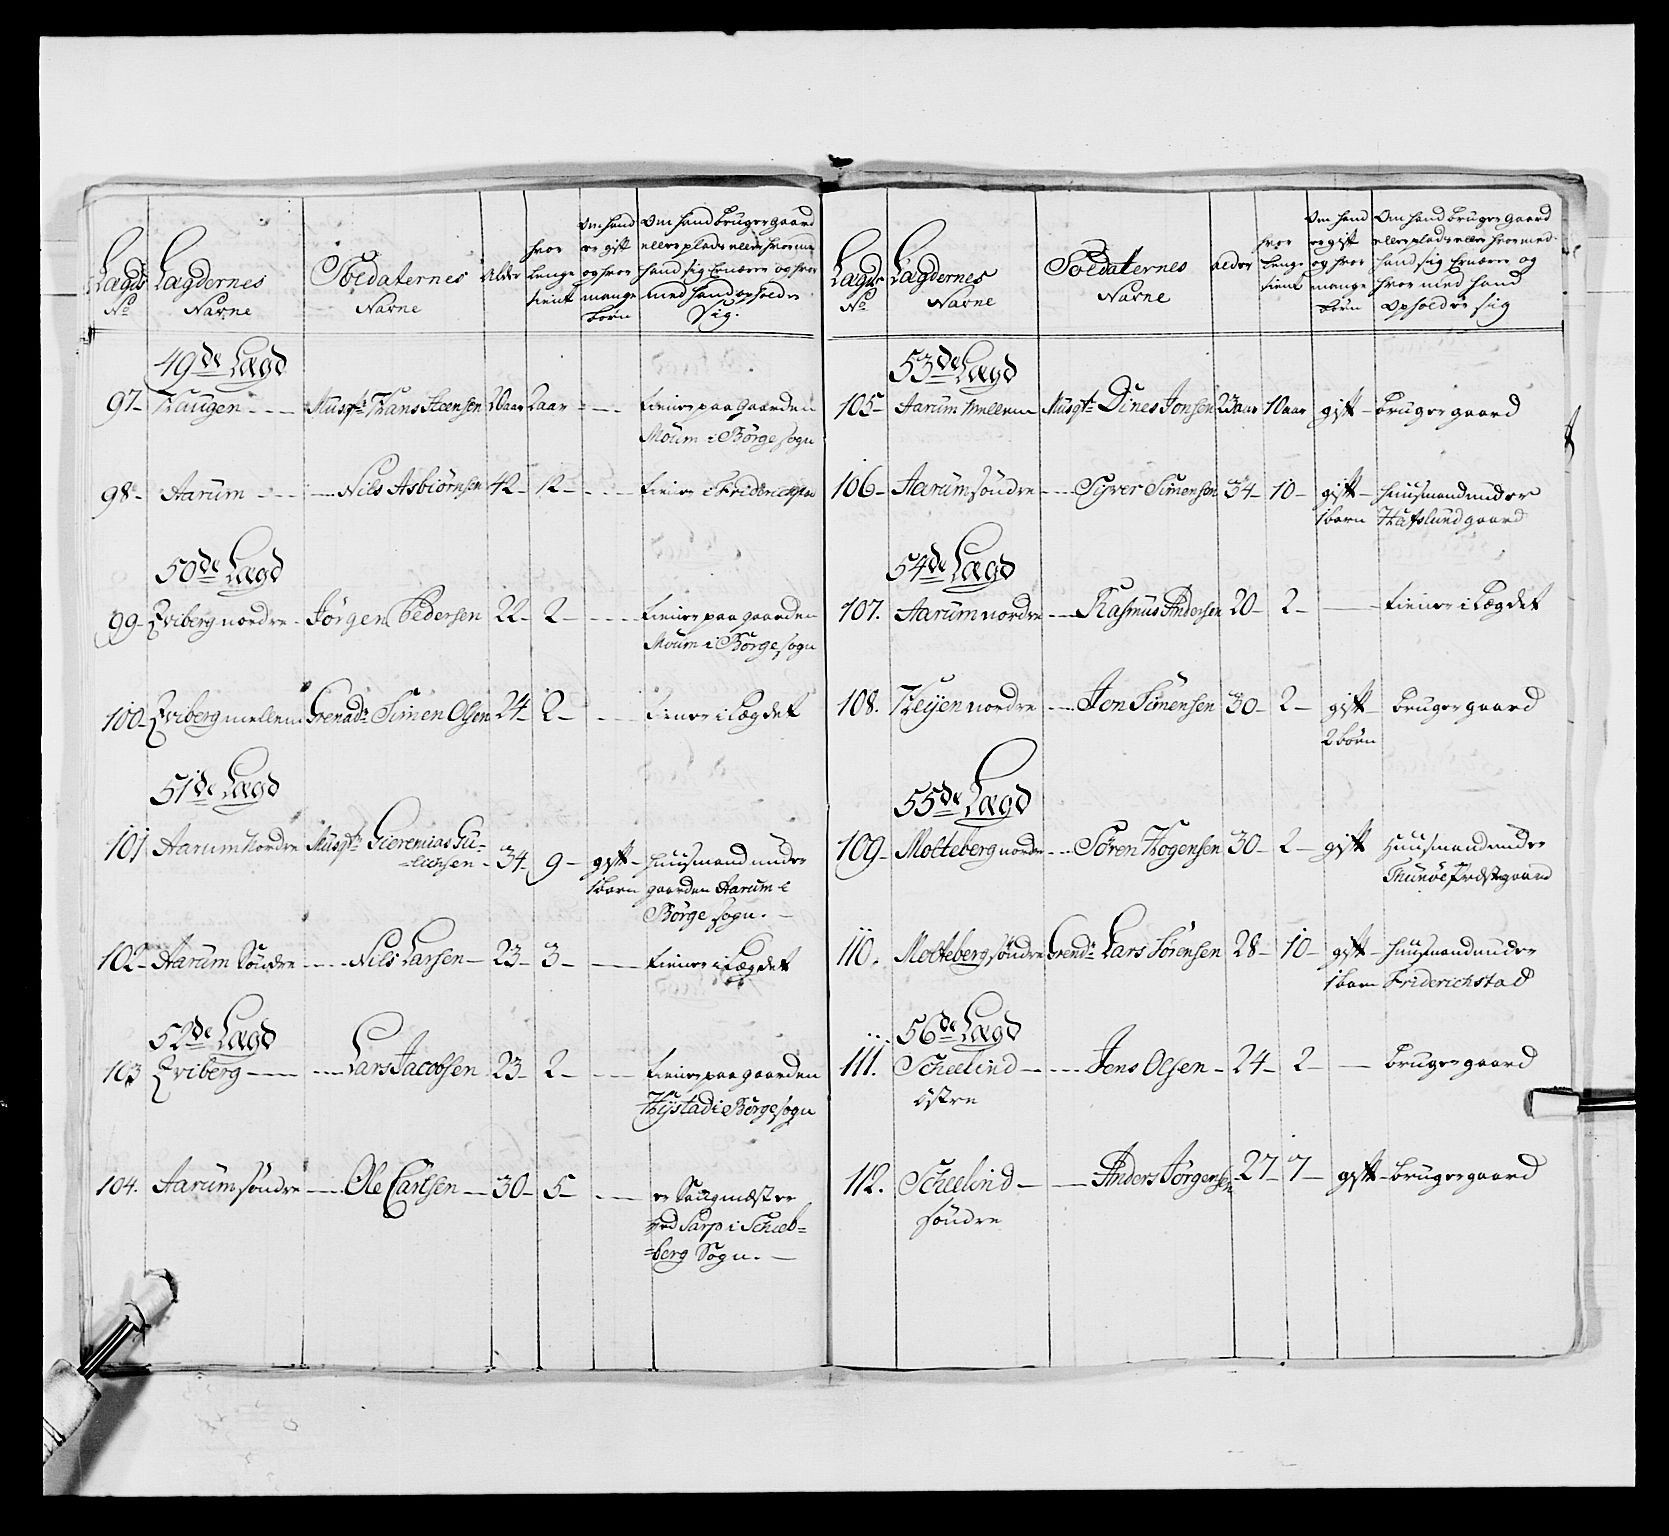 Lægds No
Lægdernes Navne
Soldaternes Navne
Alder
hvor lenge tient
Om hand er gift og hvor mange børn
Om hand bruger gaard eller plads eller hvor med hand sig Ernærer og hvor med hand op holder Sig.
49de Lægd
97- Haugen - - - Musqt: Hans Steensen 20aar 2aar - - - tiener paa gaarden
Moum i Borge sogn
98- Aarum - - - Nils Asbiørnsen 42- 12- - - - tiener i Friderichstad
50de Lægd
99- Eviberg nordre - Jørgen Pedersen 22- 2- - - - tiener paa gaarden
Moum i Borge sogn
100- Eviberg mellem Grenadr Simen Olsen 24- 2- - - tiener i Lægdet
51de Lægd
101 Aarum Nordre Musqt: Gieremias Gu-
-lichsen - 34- 9- gift- huusmand under
1barn gaarden Aarum i
Borge sogn. -
102- Aarum Søndre - - - Nils Larsen - 23- 3- - - tiener i Lægdet
52de Lægd
103 Eviberg - - - Lars Jacobsen 23- 2- - - tiener paa gaarden
Hystad i Borge sogn
104. Aarum søndre - - Ole Carlsen - 30- 5- - - er Saugmæster
ved Sarp i Scheb-
=berg Sogn. -
Lægds No
Lægdernes Navne
Soldaternes Navne
alder
hvor lenge tient
Om hand er gift og hvor mange børn
Om hand bruger gaard eller plads eller hvor med hand sig Ernærer og hvor med hand Opholder sig
53de Lægd
105- Aarum Mellem Musqt: Dines Jonsen 23aar 10aar gift - bruger gaard
106- Aarum søndre - - - Syver Simensen 34- 10- gift- huusmand under
1barn Hafslund gaard
54de Lægd
107. Aarum nordre - - - Rasmus Andersen 20- 2- - - tiener i Lægdet
108. Heijen nordre - - - Jon Simensen 30- 2- gift- bruger gaard
2børn
55de Lægd
109- Molteberg nordre - - - Søren Hogensen 30- 2- gift Huusmand under
Thunøe Prestegaard
110. Molteberg søndre Grendr Lars Sørensen 28- 10- gift- huusmand under
1barn Friderichstad
56de Lægd
111. Scheelind - - - Jens Olsen - 24- 2- - bruger gaard
østre
112. Scheelind - - - Anders Jørgensen 27- 7- gift- bruger gaard
søndre